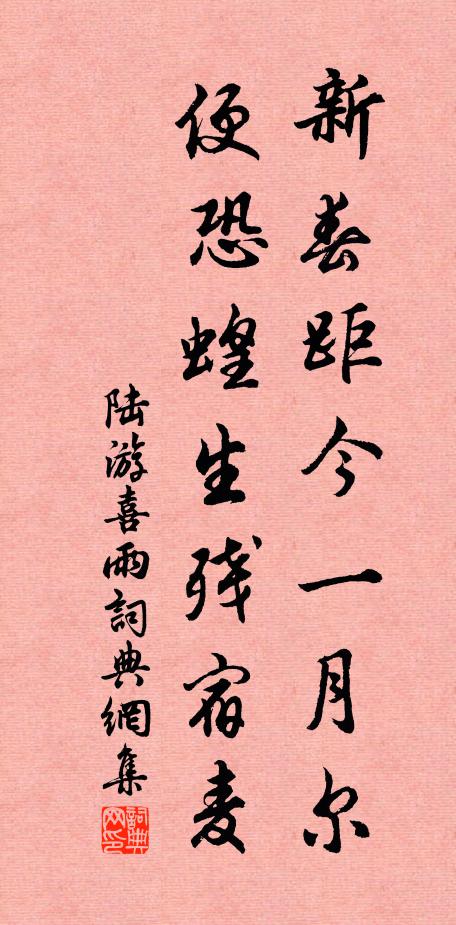 新春距今一月尔
便恐蝗生残宿麦
陆游喜雨詞典網集
詞典网印